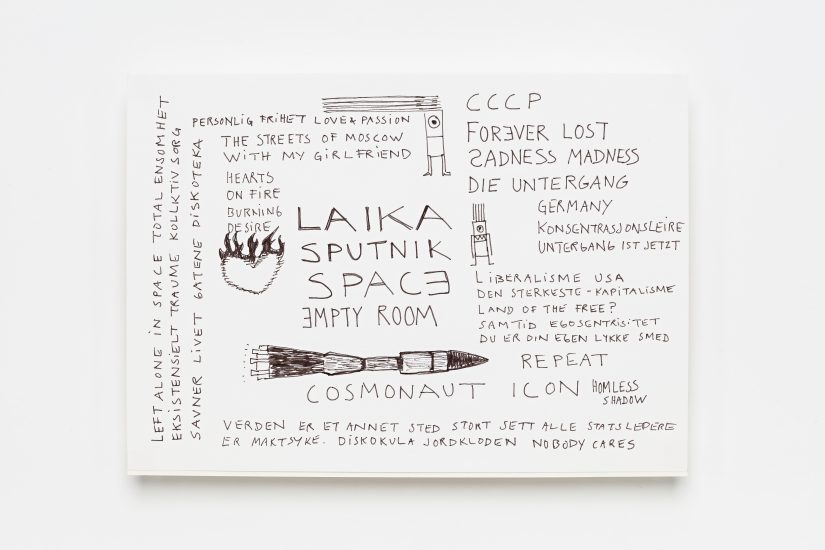 LEFT ALONE IN SPACE TOTAL ENSOMHET
EKSISTENSIELT TRAUME KOLLKTIV SORG
SAVNER LIVET GATENE DISKOTEKA
PERSONLIG FRIHET LOVE & PASSION
THE STREETS OF MOSCOW
WITH MY GIRLFRIEND
HEARTS
ON FIRE
BURNING
DESIRE
LAIKA
SPUTNIK
SPACƎ
ƎMPTY ROOM
CCCP
FORƎVER LOST
SADNESS MADNESS
DIE UNTERGANG
GERMANY
KONSENTRASJONSLEIRE
UNTERGANG IST JETZT
LIBERALISME USA
DEN STERKESTE - KAPITALISME
LAND OF THE FREE?
SAMTID EGOSENTRISITET
DU ER DIN EGEN LYKKE SMED
REPEAT
COSMONAUT ICON HOMLESS
SHADOW
VERDEN ER ET ANNET STED STORT SETT ALLE STATSLEDERE
ER MAKTSYKE. DISKOKULA JORDKLODEN NOBODY CARES